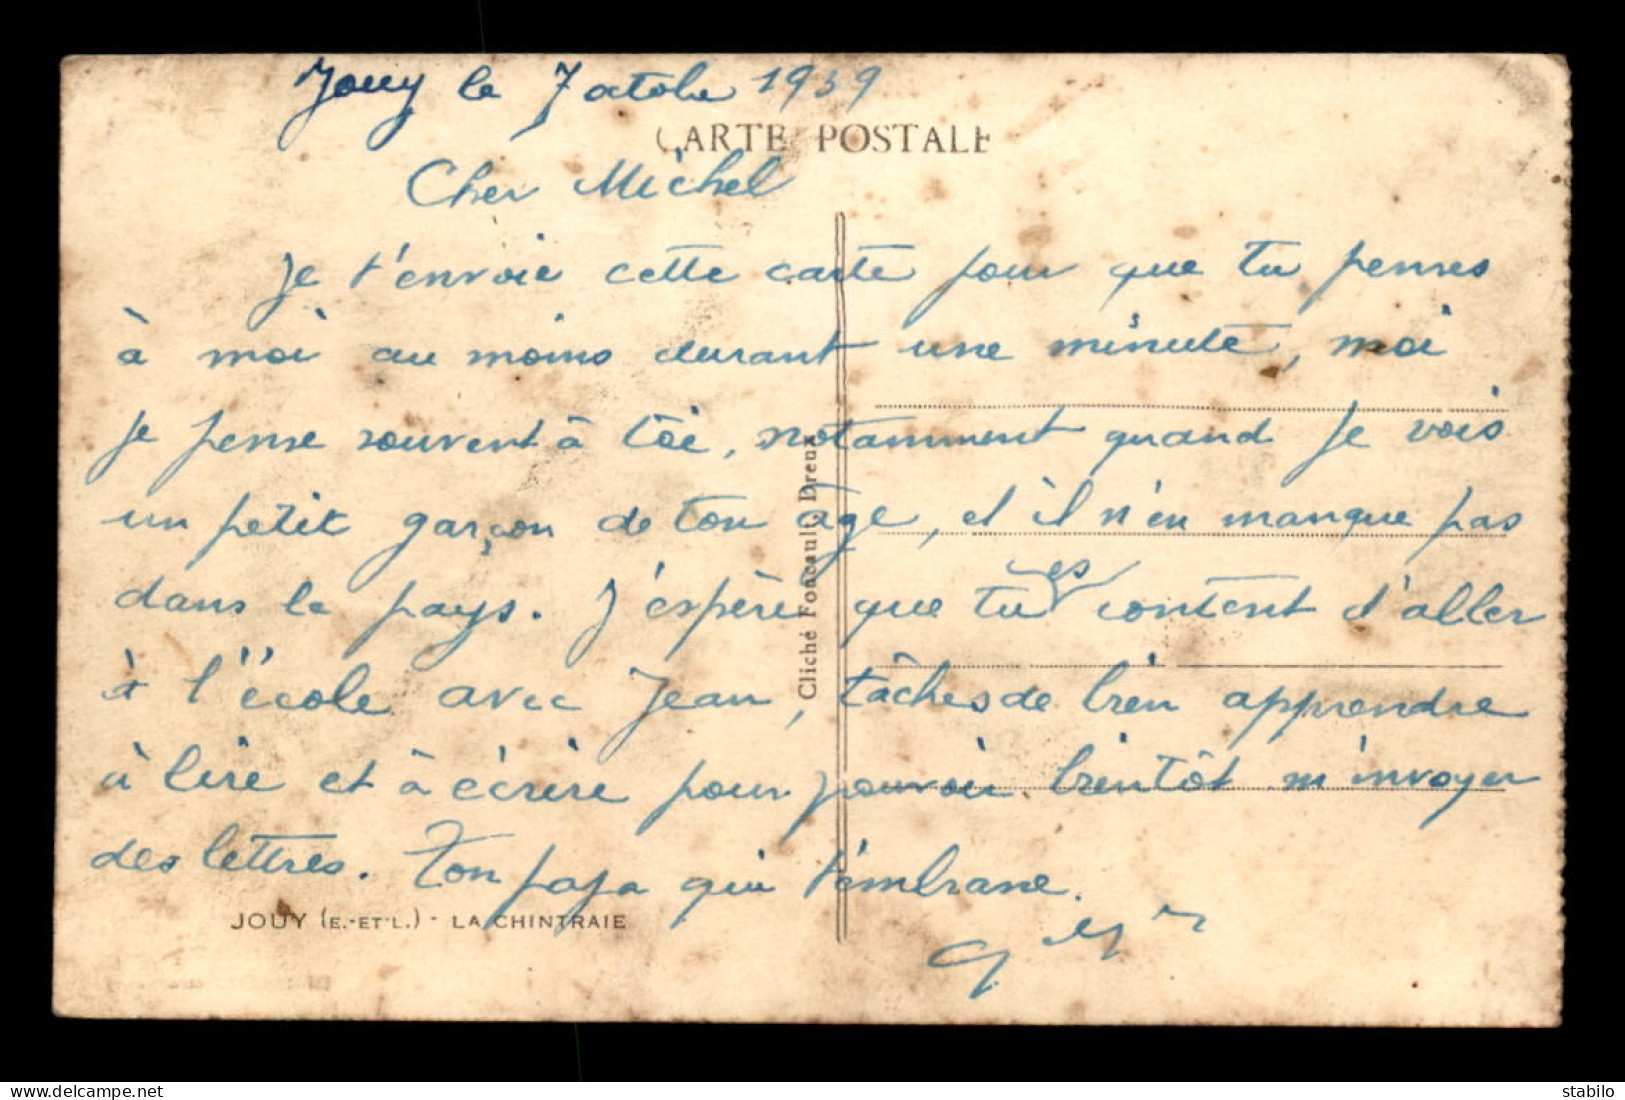 Jouy le 7 octobre 1939
CARTE POSTALE
Cher Michel
Je t'envoie cette carte pour que tu penses
à moi au moins durant une minute, moi
je pense souvent à toi, notamment quand je vois
un petit garçon de ton âge, et il n'en manque pas
dans le pays. J'espère que tu es content d'aller
à l'école avec Jean, tâches de bien apprendre
à lire et à écrire pour pouvoir bientôt m'envoyer
des lettres. Ton papa qui t'embrasse.
JOUY (E.-ET-L.) - LA CHINTRAIE
Cliché Foucault, Dreux
delcampe.net
stabilo